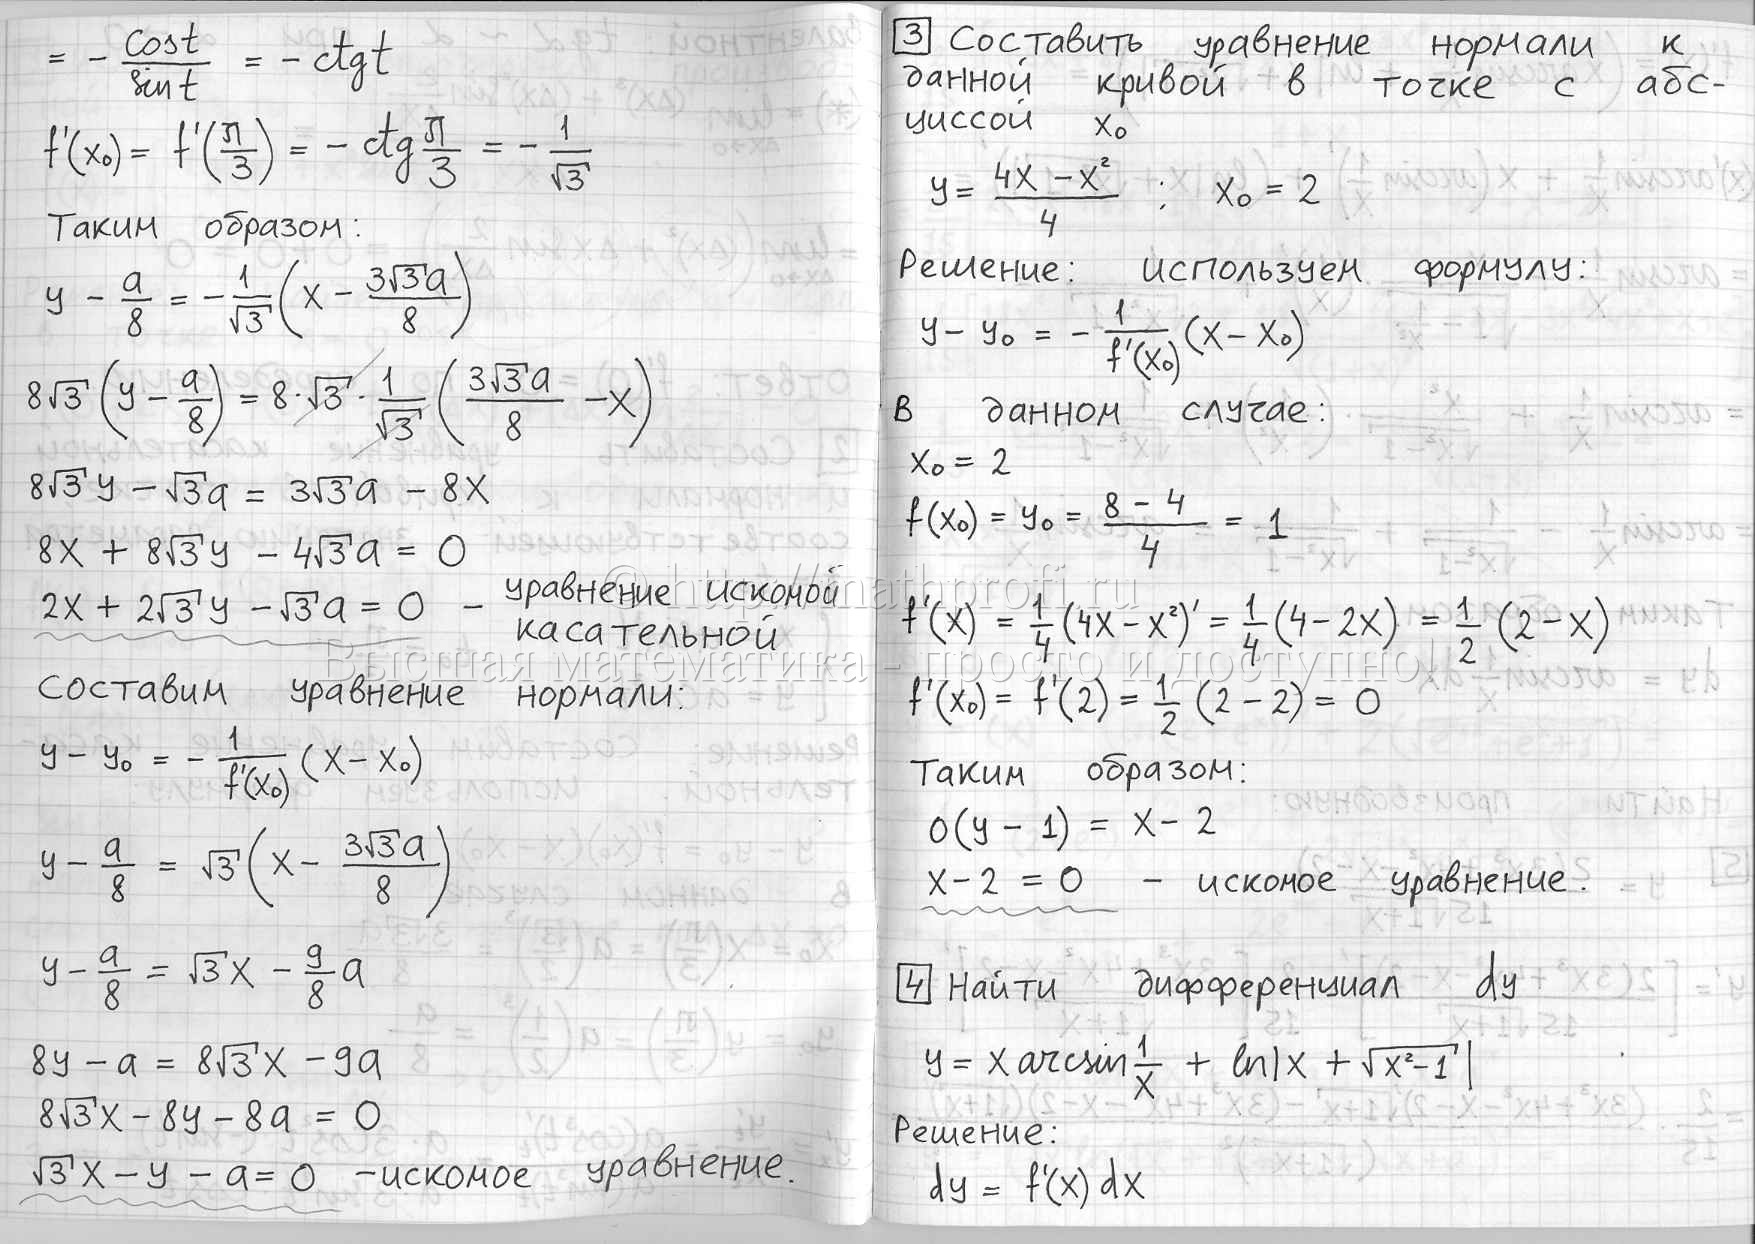 = - cost/sint = - ctgt
f'(x₀) = f'(π/3) = - ctg π/3 = - 1/√3
Таким образом:
y - a/8 = - 1/√3 (x - 3√3a/8)
8√3 (y - a/8) = 8·√3· 1/√3 (3√3a/8 - x)
8√3y - √3a = 3√3a - 8x
8x + 8√3y - 4√3a = 0
2x + 2√3y - √3a = 0 - уравнение искомой
касательной
Составим уравнение нормали:
y - y₀ = - 1/f'(x₀) (x - x₀)
y - a/8 = √3 (x - 3√3a/8)
y - a/8 = √3x - 9/8 a
8y - a = 8√3x - 9a
8√3x - 8y - 8a = 0
√3x - y - a = 0 - искомое уравнение.
3 Составить уравнение нормали к
данной кривой в точке с абс-
циссой x₀
y = (4x - x²)/4 ; x₀ = 2
Решение: используем формулу:
y - y₀ = - 1/f'(x₀) (x - x₀)
В данном случае:
x₀ = 2
f(x₀) = y₀ = (8 - 4)/4 = 1
f'(x) = 1/4 (4x - x²)' = 1/4 (4 - 2x) = 1/2 (2 - x)
f'(x₀) = f'(2) = 1/2 (2 - 2) = 0
Таким образом:
0(y - 1) = x - 2
x - 2 = 0 - искомое уравнение.
4 Найти дифференциал dy
y = x arcsin 1/x + ln|x + √(x²-1)|
Решение:
dy = f'(x) dx
© http://mathprofi.ru
Высшая математика - просто и доступно!